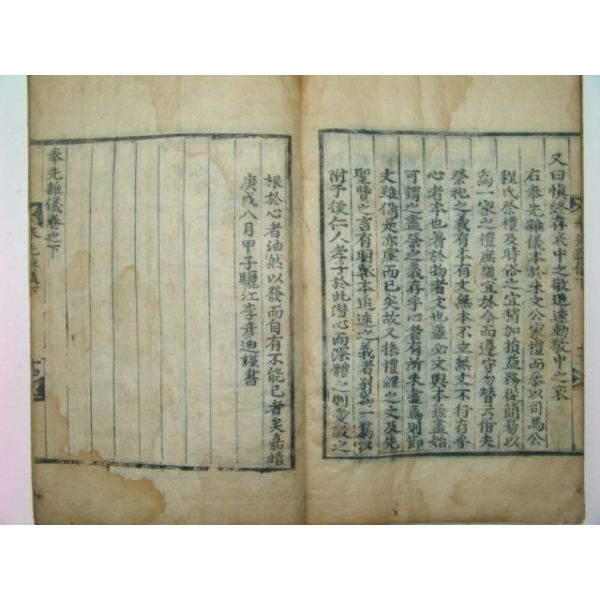 又曰愼終存哀中之敬追遠動敬中之哀
右奉先雜儀本於朱文公家禮而參以司馬公
程氏祭禮及時俗之宜稍加損益務從簡易以
爲一家之禮庶幾宜於今而遵守勿替云爾夫
祭祀之義有本有文無本不立無文不行存乎
心者本也著於物者文也盖必文與本兼盡始
可謂之盡祭之義存乎心者有所未盡焉則節
文雖備是亦虛而已矣故又採禮經之文及先
聖賢之言有明報本追遠之義者別爲一篇以
附于後仁人孝子於此潛心而深體之則愛敬之
根於心者油然以發而自有不能已者矣嘉靖
庚戌八月甲子驪江李彦迪謹書
奉先雜儀卷之下